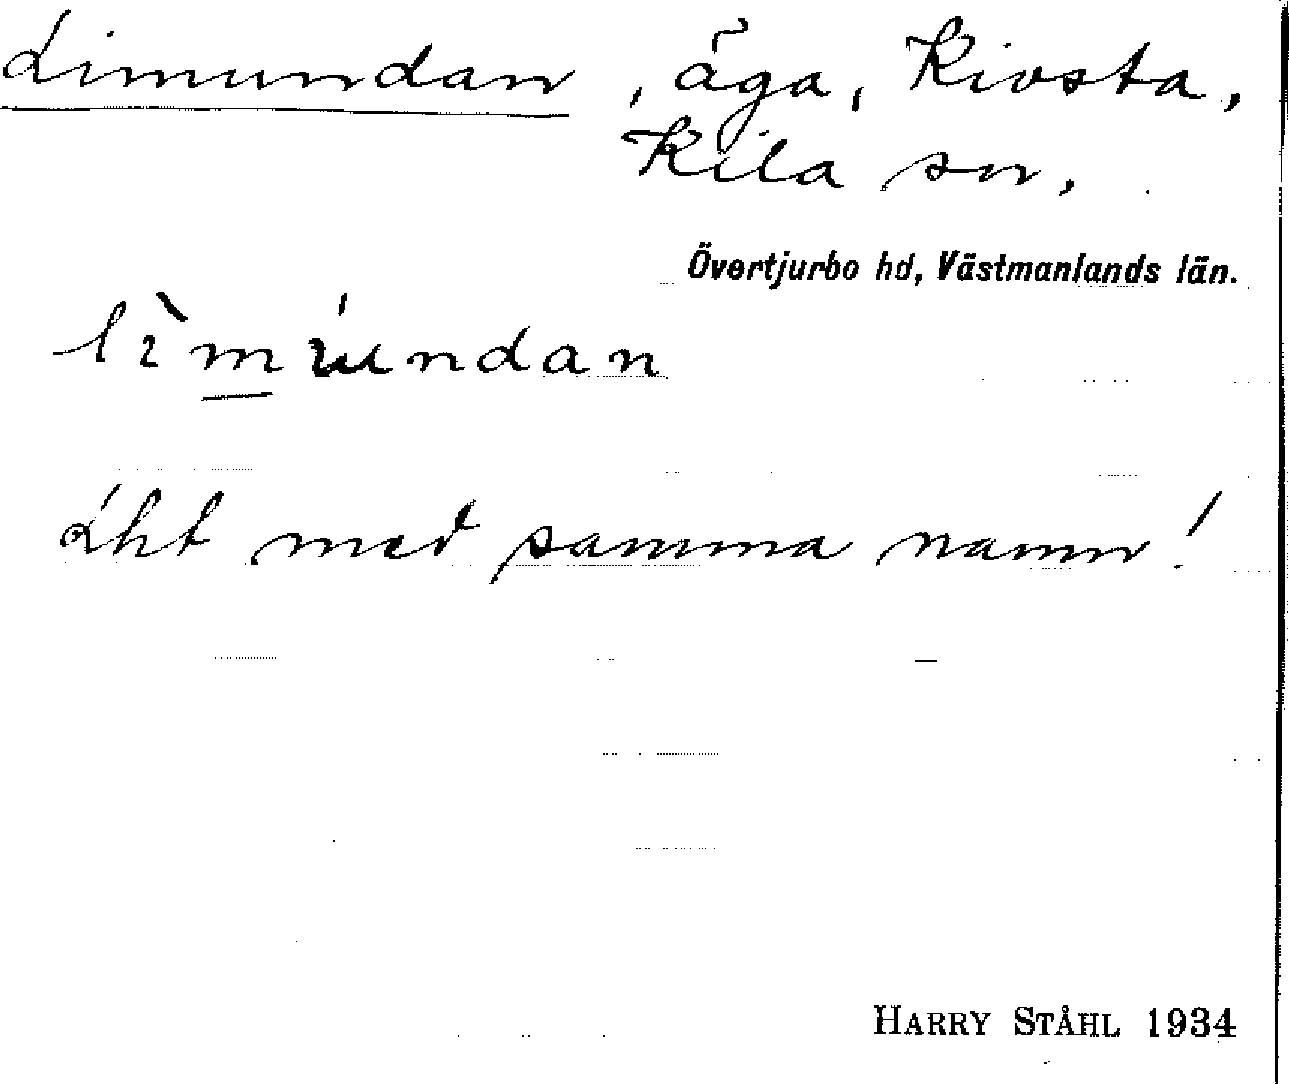 Limundan, äga, Kivsta,
Kila sn.
Övertjurbo hd, Västmanlands län.
lìmúndan
Lht med samma namn!
HARRY STÅHL 1934